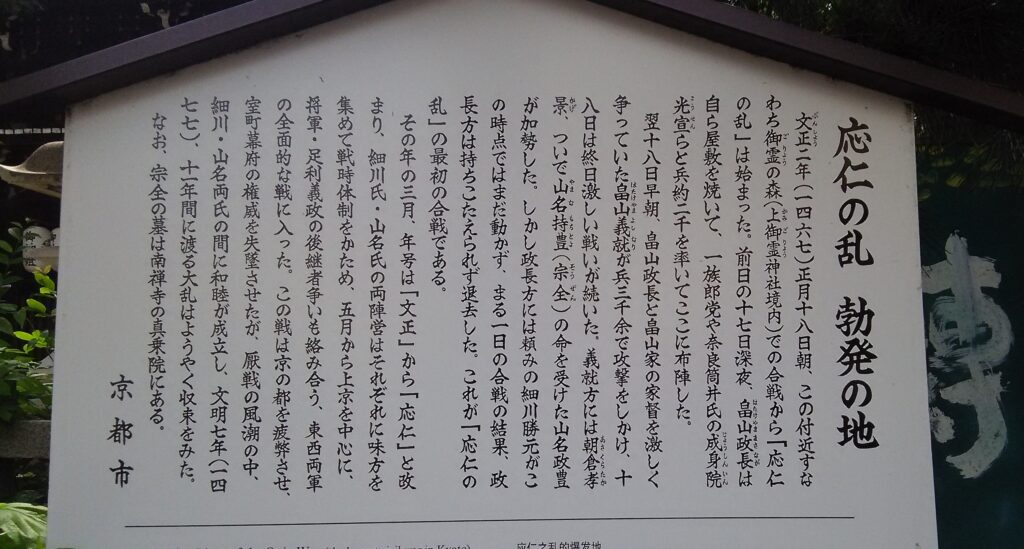 応仁の乱　勃発の地
文正二年（一四六七）正月十八日朝、この付近すな
わち御霊の森（上御霊神社境内）での合戦から「応仁
の乱」は始まった。前日の十七日深夜、畠山政長は
自ら屋敷を焼いて、一族郎党や奈良筒井氏の成身院
光宣らと兵約二千を率いてここに布陣した。
翌十八日早朝、畠山政長と畠山家の家督を激しく
争っていた畠山義就が兵三千余で攻撃をしかけ、十
八日は終日激しい戦いが続いた。義就方には朝倉孝
景、ついで山名持豊（宗全）の命を受けた山名政豊
が加勢した。しかし政長方には頼みの細川勝元がこ
の時点ではまだ動かず、まる一日の合戦の結果、政
長方は持ちこたえられず退去した。これが「応仁の
乱」の最初の合戦である。
その年の三月、年号は「文正」から「応仁」と改
まり、細川氏・山名氏の両陣営はそれぞれに味方を
集めて戦時体制をかため、五月から上京を中心に、
将軍・足利義政の後継者争いも絡み合う、東西両軍
の全面的な戦に入った。この戦は京の都を疲弊させ、
室町幕府の権威を失墜させたが、厭戦の風潮の中、
細川・山名両氏の間に和睦が成立し、文明七年（一四
七七）、十一年間に渡る大乱はようやく収束をみた。
なお、宗全の墓は南禅寺の真乗院にある。
京都市
応仁之乱的爆发地